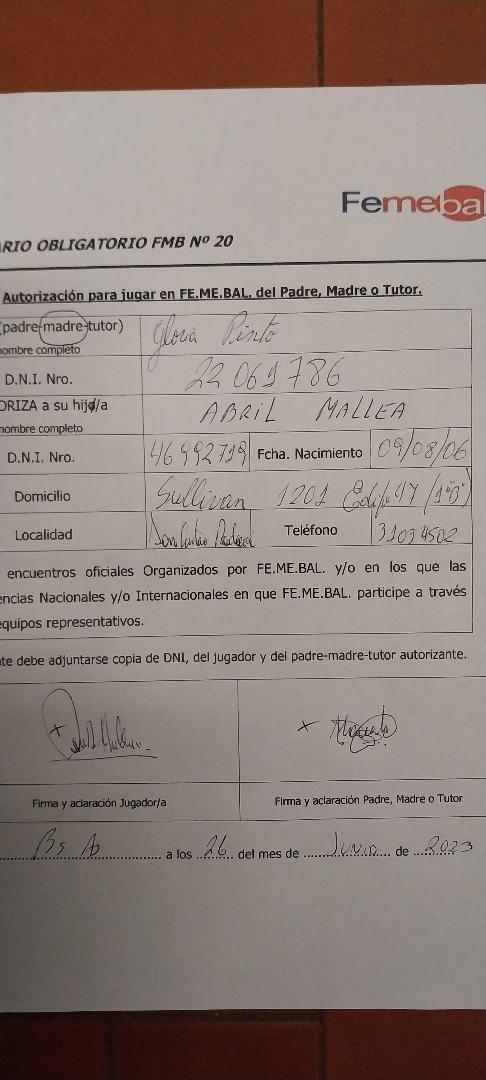 Femebal
RIO OBLIGATORIO FMB Nº 20
Autorización para jugar en FE.ME.BAL. del Padre, Madre o Tutor.
(padre-madre-tutor) Gloria Pinto
nombre completo
D.N.I. Nro. 22 061 786
ORIZA a su hijo/a ABRIL MALLEA
nombre completo
D.N.I. Nro. 46992719 Fcha. Nacimiento 09/08/06
Domicilio Sullivan 1201 Edif 47 /1º"B"
Localidad Teléfono 31034502
encuentros oficiales Organizados por FE.ME.BAL. y/o en los que las
encias Nacionales y/o Internacionales en que FE.ME.BAL. participe a través
equipos representativos.
te debe adjuntarse copia de DNI, del jugador y del padre-madre-tutor autorizante.
Firma y aclaración Jugador/a Firma y aclaración Padre, Madre o Tutor
Bs A a los 26 del mes de Junio de 2023